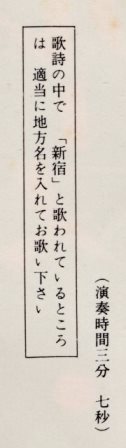 (演奏時間三分 七秒)
歌詩の中で 「新宿」と歌われているところ
は 適当に地方名を入れてお歌い下さい